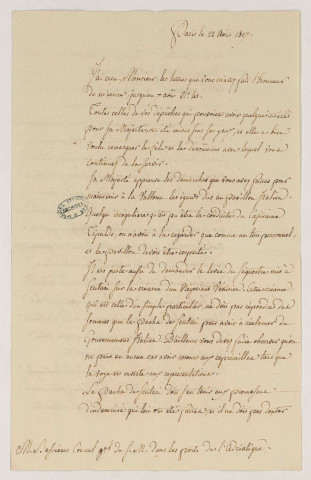 Paris le 22 Août 1807.
J'ai reçu, Monsieur, les lettres que vous m'avez fait l'honneur
de m'écrire jusqu'au
Toutes celles de vos dépêches qui pouvoient avoir quelque intérêt
pour Sa Majesté ont été mises sous ses yeux, et elle a bien
voulu remarquer le zèle et le dévouement avec lequel vous
continuez de la servir.
Sa Majesté approuve les démarches que vous avez faites pour
maintenir à la Vallone les égards dus au pavillon Italien.
Quelque irrégulière qu'ait pu être la conduite du Capitaine
on n'avoit à la regarder que comme un tort personnel,
et le pavillon devoit être respecté.
Il est juste aussi de demander la levée du séquestre mis à
Scutari sur la créance d'un Négociant Vénitien. Cette créance
qui est celle d'un simple particulier, ne doit pas répondre des
sommes que le Pacha de Scutari peut avoir à réclamer du
Gouvernement Italien. D'ailleurs vous devez faire observer qu'on
ne peut en aucun cas avoir recours aux représailles tant que
la voye est ouverte aux représentations.
Le Pacha de Scutari doit s'en tenir aux promesses
d'indemnité qui lui ont été faites, et il ne doit pas douter
M. Bessières Consul gal de S. M. dans les ports de l'adriatique.